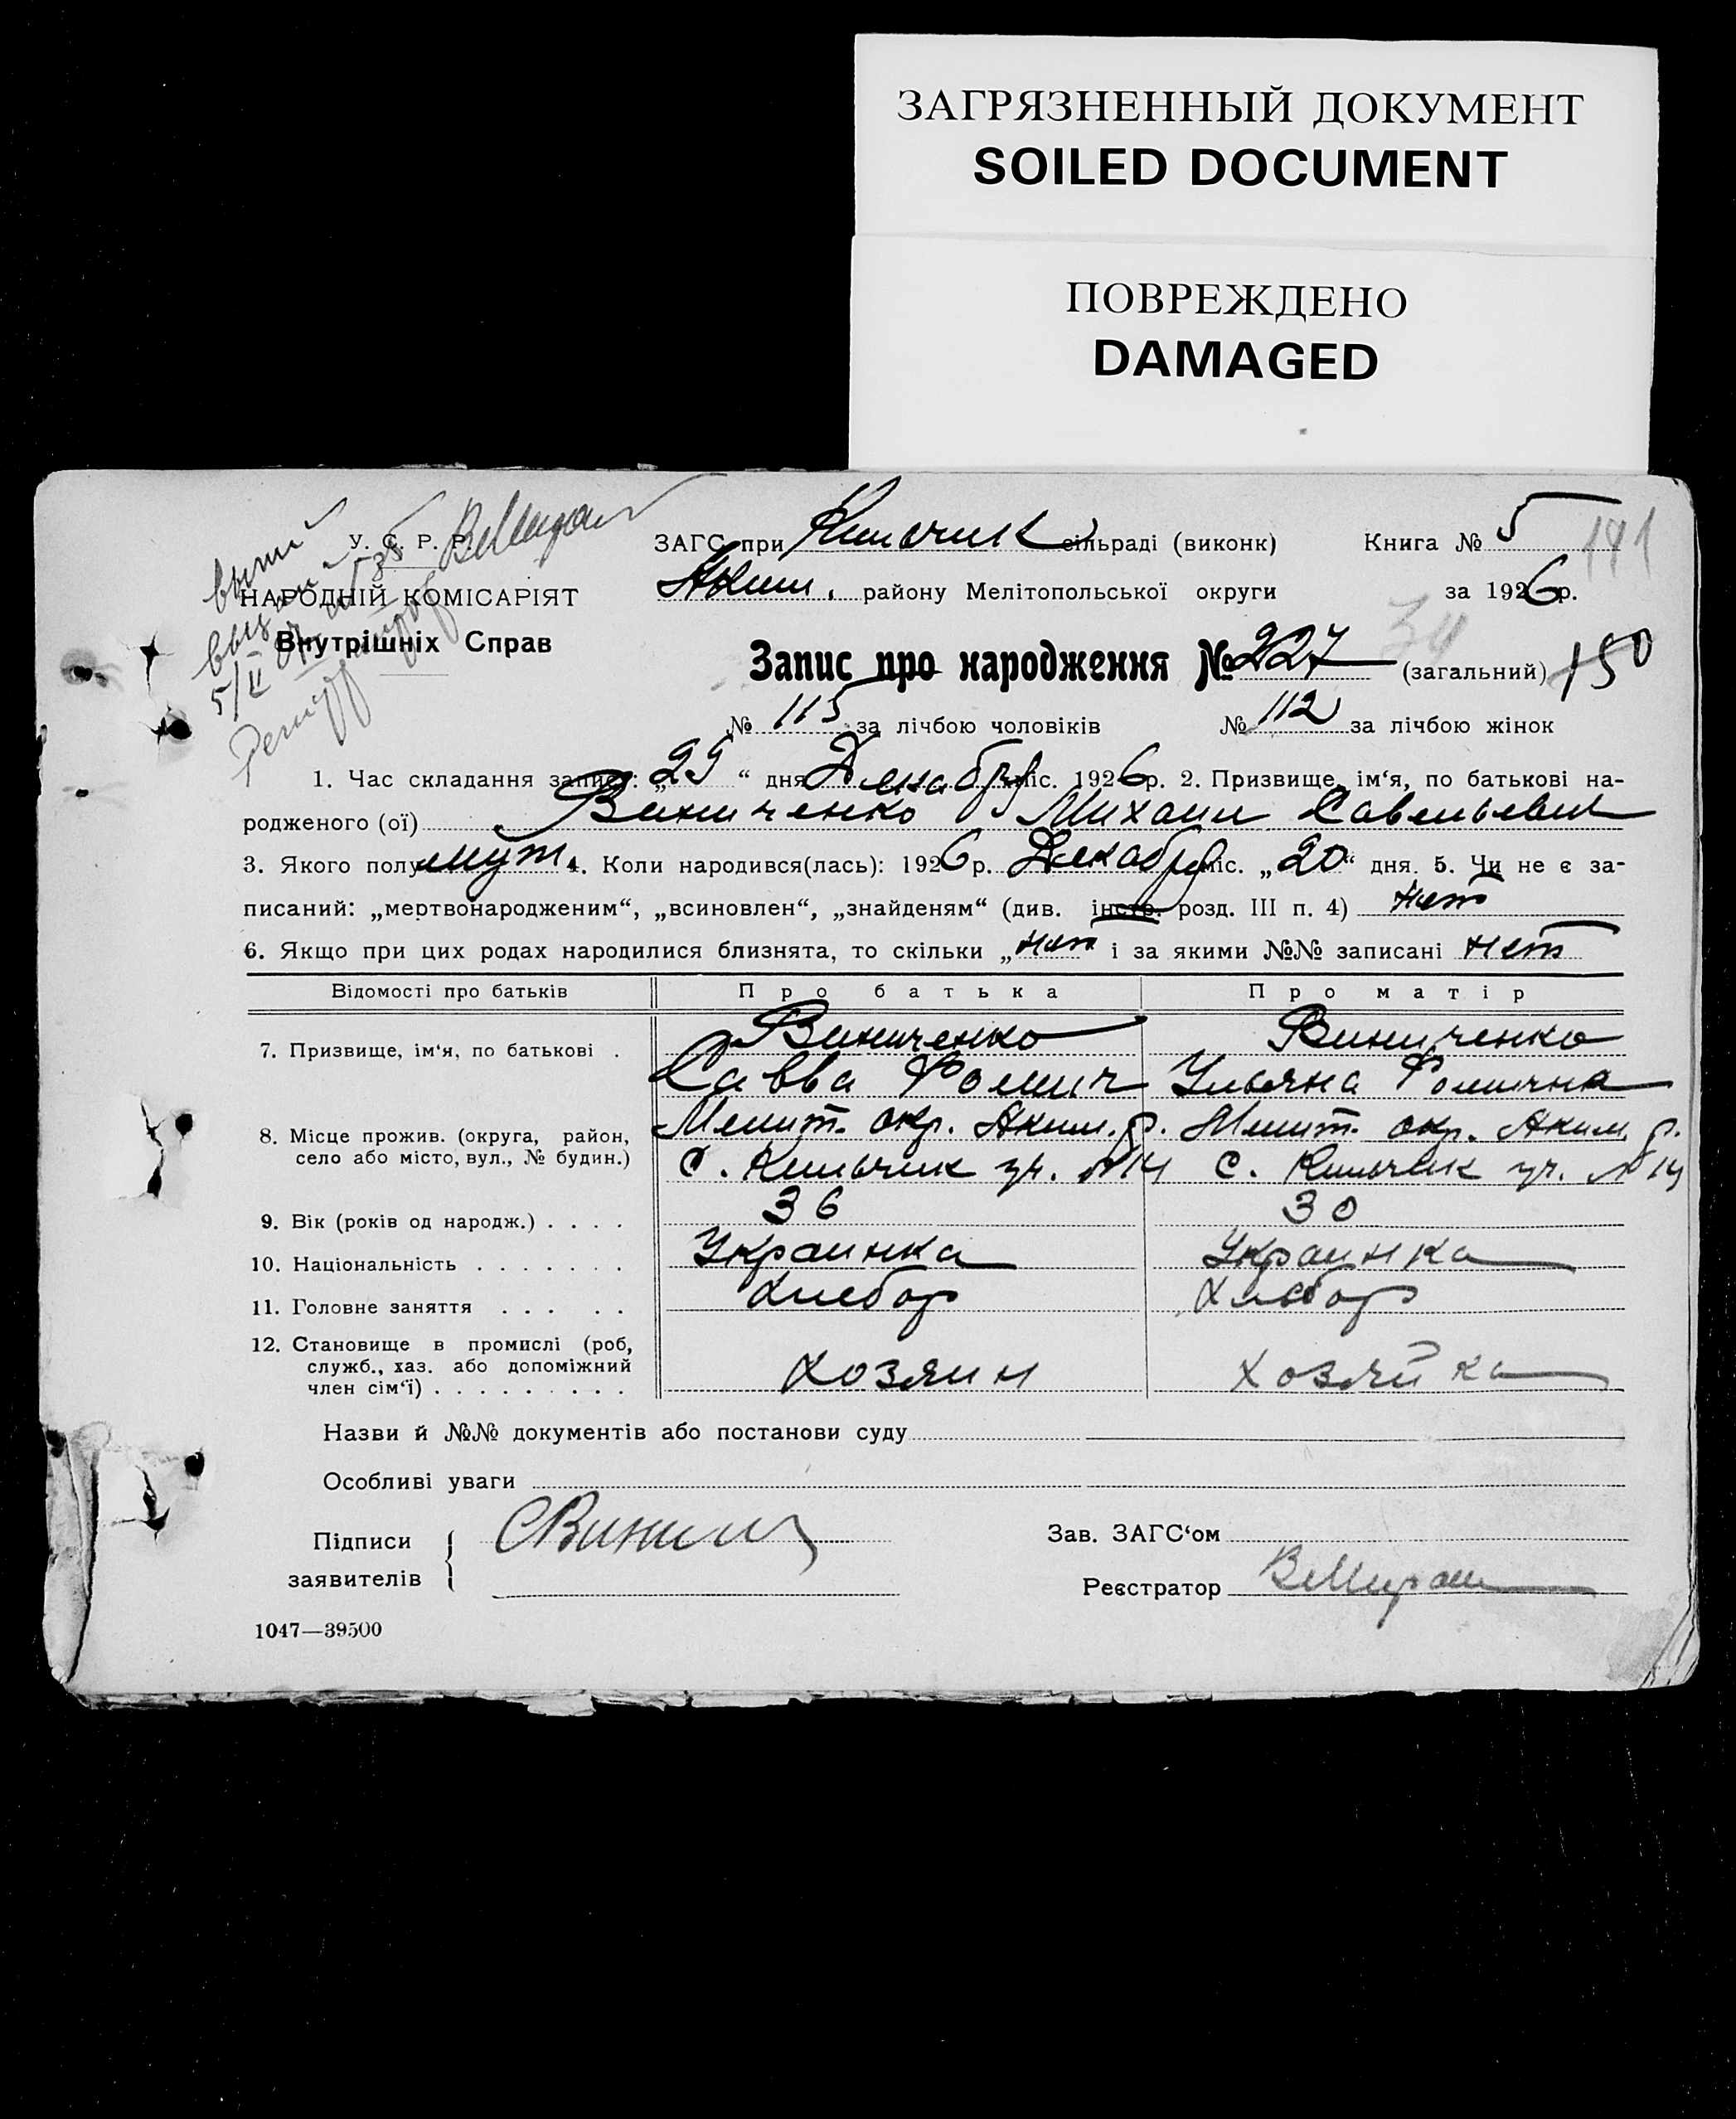 ЗАГРЯЗНЕННЫЙ ДОКУМЕНТ
SOILED DOCUMENT
ПОВРЕЖДЕНО
DAMAGED
У. С. Р. Р.
НАРОДНІЙ КОМІСАРІЯТ
Внутрішніх Справ
ЗАГС при Кильчик сільраді (виконк) Книга № 5 141
Аким. району Мелітопольської округи за 1926 р.
34
Запис про народження № 227 (загальний) 150
№ 115 за лічбою чоловіків № 112 за лічбою жінок
1. Час складання запису: „29“ дня Декабря міс. 1926 р. 2. Призвище, ім‘я, по батькові на-
родженого (ої) Винниченко Михаил Савельевич
3. Якого полу муж. 4. Коли народився(лась): 1926 р. Декабря міс. „20“ дня. 5. Чи не є за-
писаний: „мертвонародженим“, „всиновлен“, „знайденям“ (див. інстр. розд. III п. 4) нет
6. Якщо при цих родах народилися близнята, то скільки „нет і за якими №№ записані нет
Відомості про батьків Про батька Про матір
7. Призвище, ім‘я, по батькові . Виниченко Виниченко
Савва Фомич Ульяна Фомична
8. Місце прожив. (округа, район, Мелит. окр. Аким. р. Мелит. окр. Аким. р.
село або місто, вул., № будин.) С. Кильчик уч. №14 С. Кильчик уч. №14
9. Вік (років од народж.) . . . . 36 30
10. Національність . . . . . . . Украинка Украинка
11. Головне заняття . . . . . Хлебор Хлебор
12. Становище в промислі (роб,
служб., хаз. або допоміжний
член сім‘ї) . . . . . . . . . Хозяин Хозяйка
Назви й №№ документів або постанови суду
Особливі уваги
Підписи
заявителів
СВинич
Зав. ЗАГС‘ом
Реєстратор
1047—39500